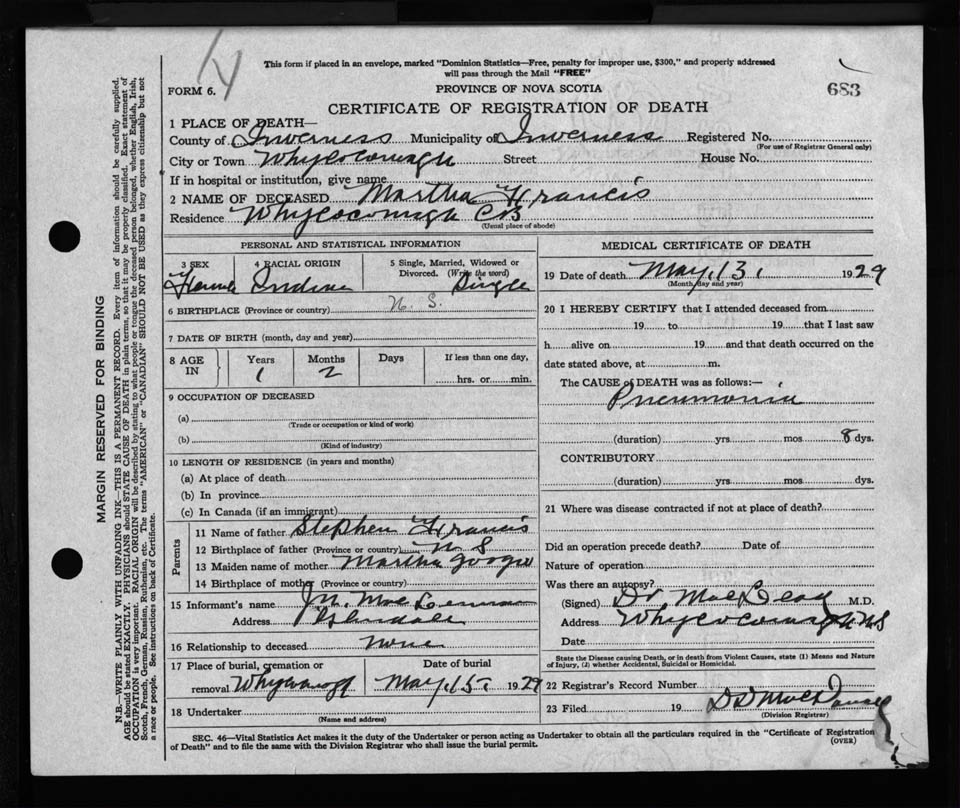 This form if placed in an envelope, marked "Dominion Statistics—Free, penalty for improper use, $300," and properly addressed
will pass through the Mail "FREE"
FORM 6. PROVINCE OF NOVA SCOTIA 683
CERTIFICATE OF REGISTRATION OF DEATH
1 PLACE OF DEATH—
County of Inverness Municipality of Inverness Registered No.
(For use of Registrar General only)
City or Town Whycocomagh Street House No.
If in hospital or institution, give name
2 NAME OF DECEASED Martha Francis
Residence Whycocomagh C B
(Usual place of abode)
PERSONAL AND STATISTICAL INFORMATION
3 SEX 4 RACIAL ORIGIN 5 Single, Married, Widowed or
Divorced. (Write the word)
Female Indian Single
6 BIRTHPLACE (Province or country) N. S.
7 DATE OF BIRTH (month, day and year)
8 AGE IN Years Months Days If less than one day,
1 2 hrs. or min.
9 OCCUPATION OF DECEASED
(a)
(Trade or occupation or kind of work)
(b)
(Kind of industry)
10 LENGTH OF RESIDENCE (in years and months)
(a) At place of death
(b) In province
(c) In Canada (if an immigrant)
Parents
11 Name of father Stephen Francis
12 Birthplace of father (Province or country) N S
13 Maiden name of mother Martha Googoo
14 Birthplace of mother (Province or country)
15 Informant's name M. MacLennan
Address
16 Relationship to deceased none
17 Place of burial, cremation or Date of burial
removal May, 15, 1929
18 Undertaker
(Name and address)
MEDICAL CERTIFICATE OF DEATH
19 Date of death May, 13, 1929
(Month, day and year)
20 I HEREBY CERTIFY that I attended deceased from
19 to 19 that I last saw
h alive on 19 and that death occurred on the
date stated above, at m.
The CAUSE of DEATH was as follows:—
Pneumonia
(duration) yrs. mos 8 dys.
CONTRIBUTORY
(duration) yrs. mos. dys.
21 Where was disease contracted if not at place of death?
Did an operation precede death? Date of
Nature of operation
Was there an autopsy?
(Signed) Dr MacLeod M.D.
Address Whycocomagh N S
Date
State the Disease causing Death, or in death from Violent Causes, state (1) Means and Nature
of Injury, (2) whether Accidental, Suicidal or Homicidal.
22 Registrar's Record Number
23 Filed 19 D D MacDonald
(Division Registrar)
SEC. 46—Vital Statistics Act makes it the duty of the Undertaker or person acting as Undertaker to obtain all the particulars required in the "Certificate of Registration
of Death" and to file the same with the Division Registrar who shall issue the burial permit. (OVER)
MARGIN RESERVED FOR BINDING
N.B.—WRITE PLAINLY WITH UNFADING INK—THIS IS A PERMANENT RECORD. Every item of information should be carefully supplied.
AGE should be stated EXACTLY. PHYSICIANS should STATE CAUSE OF DEATH in plain terms, so that it may be properly classified. Exact statement of
OCCUPATION is very important. RACIAL ORIGIN will be described by stating to what people or tongue the deceased person belonged, whether English, Irish,
Scotch, French, German, Russian, Ruthenian, etc. The terms "AMERICAN" or "CANADIAN" SHOULD NOT BE USED as they express citizenship but not
a race or people. See instructions on back of Certificate.